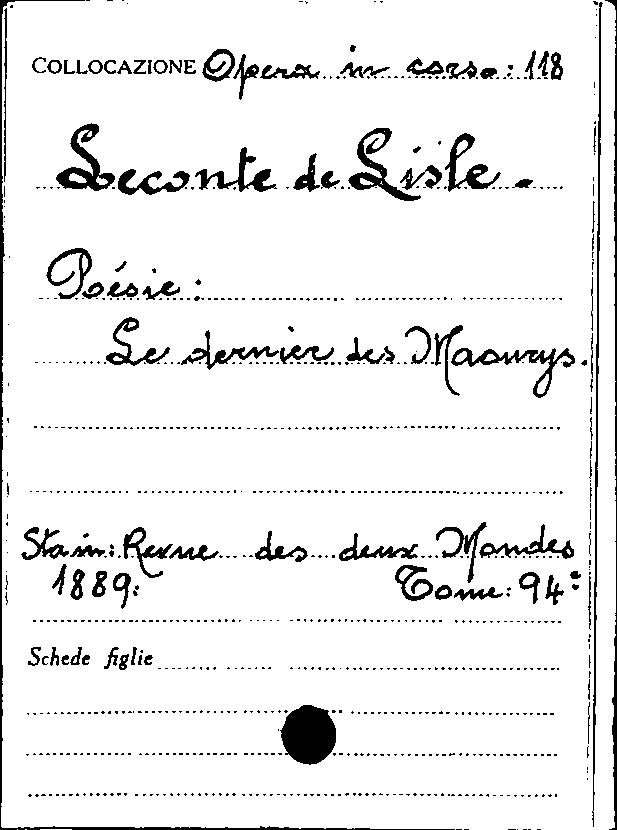 COLLOCAZIONE Opera in corso: 118
Leconte de Lisle.
Poésie:
Le dernier des Maourys.
Sta in: Revue des deux Mondes
1889: Tome: 94º
Schede figlie